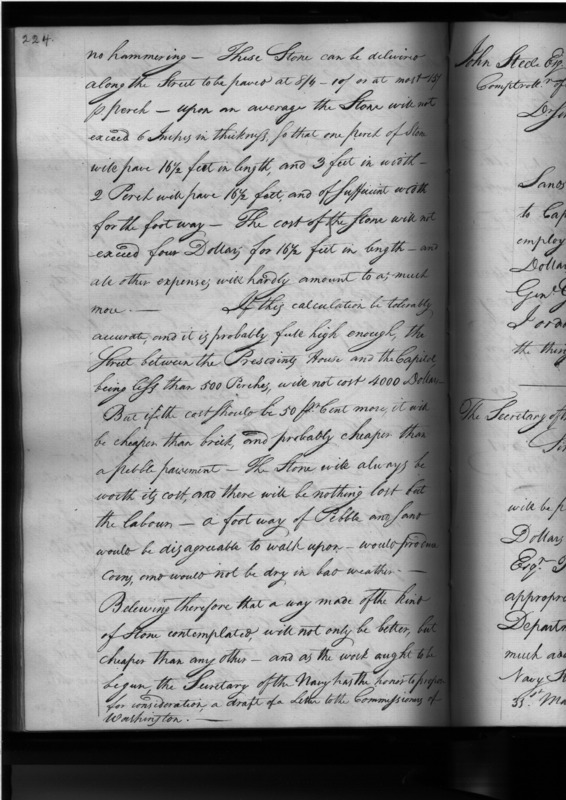 224.
no hammering — These Stone can be delivered
along the Street to be paved at 8/4 — 10/ or at most 15/
⅌ perch — upon an average the Stone will not
exceed 6 Inches in thickness, so that one perch of Stone
will pave 16½ feet in length, and 3 feet in width —
2 Perch will pave 16½ feet, and of sufficient width
for the foot way — The cost of the Stone will not
exceed four Dollars, for 16½ feet in length — and
all other expenses will hardly amount to as much
more. — If this calculation be tolerably
accurate, and it is probably full high enough, the
Street between the Presidents House and the Capitol
being less than 500 Perches, will not cost 4000 Dollars —
But if the cost should be 50 ⅌r Cent more, it will
be cheaper than brick, and probably cheaper than
a pebble pavement — The Stone will always be
worth its cost, and there will be nothing lost but
the labour — a foot way of Pebble and sand
would be disagreeable to walk upon — would produce
corns, and would not be dry in bad weather. —
Believing therefore that a way made of the kind
of Stone contemplated will not only be better, but
cheaper than any other — and as the work aught to be
begun, the Secretary of the Navy has the honor to propose
for consideration, a draft of a Letter to the Commissioners of
Washington. —
John Steele Esq
Comptrollr. of
to Cap
employ
Dollar
Genl. G
the thin
The Secretary of th
Si
will be p
Dollars
Esqr.
appropri
Departm
much as
Navy
31st. Ma